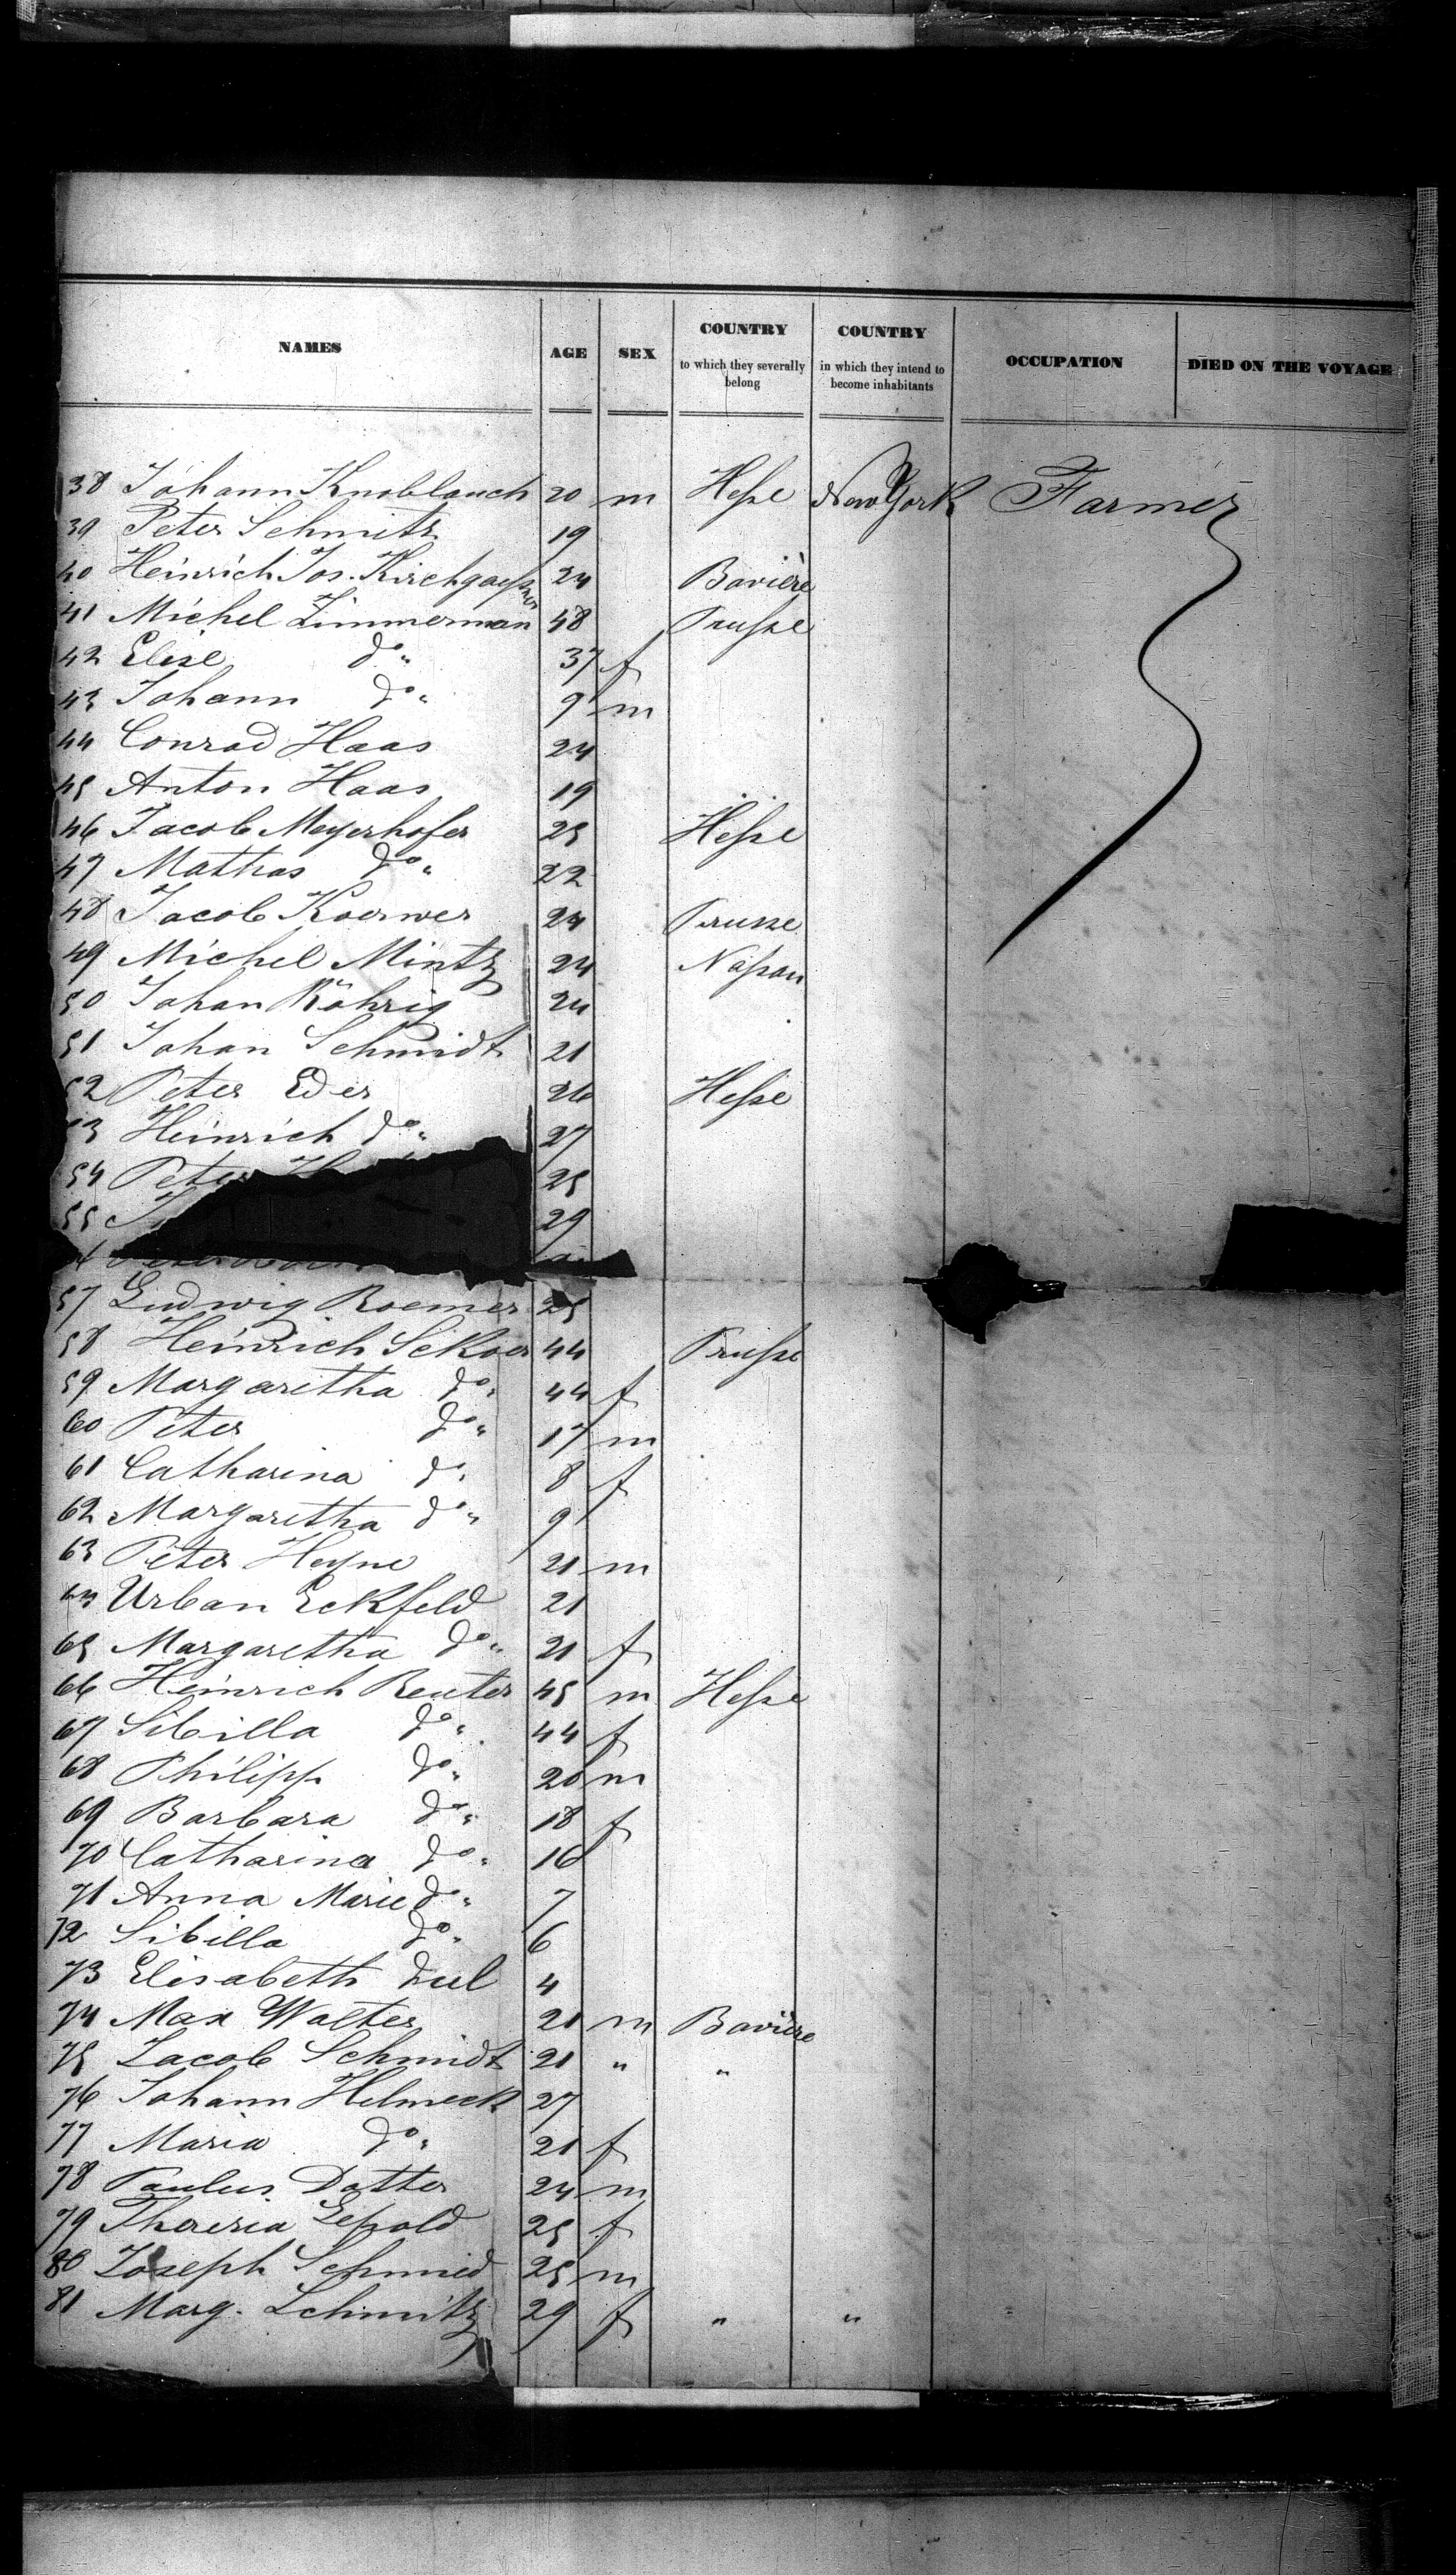 NAMES AGE SEX COUNTRY to which they severally belong COUNTRY in which they intend to become inhabitants OCCUPATION DIED ON THE VOYAGE
38 Johann Knoblauch 20 m Hesse New York Farmer
39 Peter Schmitz 19
40 Heinrich Jos. Kirchgaessner 24 Bavière
41 Michel Zimmerman 48 Prusse
42 Elise do " 37 f
43 Johann do " 9 m
44 Conrad Haas 24
45 Anton Haas 19
46 Jacob Meyerhofer 25 Hesse
47 Mathas do " 22
48 Jacob Koerwer 24 Prusse
49 Michel Mintz 24 Nassau
50 Johan Röhrig 24
51 Johan Schmidt 21
52 Peter Eder 26 Hesse
53 Heinrich do " 27
54 Peter 25
55 29
57 Ludwig Roemer 25
58 Heinrich 44 Prusse
59 Margaretha do " 44 f
60 Peter do " 17 m
61 Catharina do 8 f
62 Margaretha do " 9
63 Peter Heyne 21 m
64 Urban Eckfeld 21
65 Margaretha do " 21 f
66 Heinrich Reuter 45 m Hesse
67 Sibilla do " 44 f
68 Philipp do " 20 m
69 Barbara do " 18 f
70 Catharina do " 16
71 Anna Marie do " 7
72 Sibilla do " 6
73 Elisabeth 4
74 Max Walter 21 m Bavière
75 Jacob Schmidt 21 " "
76 Johann Helmeck 27
77 Maria do " 21 f
78 Paulus Datter 24 m
79 Theresia 25 f
80 Joseph Schmied 25 m
81 Marg. Schmitz 29 f " "